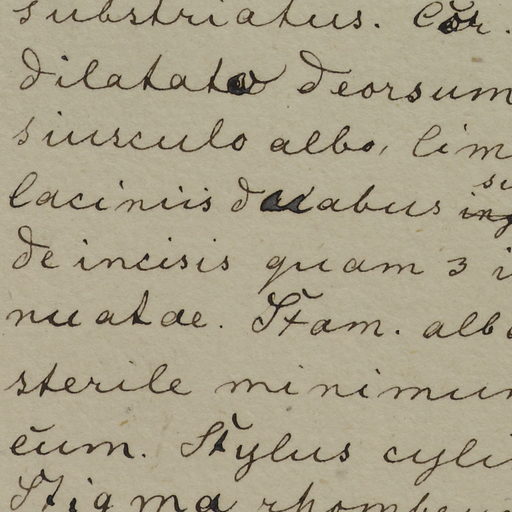 substriatus. Cor.
dilatato deorsum
siusculo albo, lim
laciniis duabus
deincisis quam 3 i
nuatae. Stam. alb
sterile minimum
eum. Stylus cyli
Stigma rhombeu